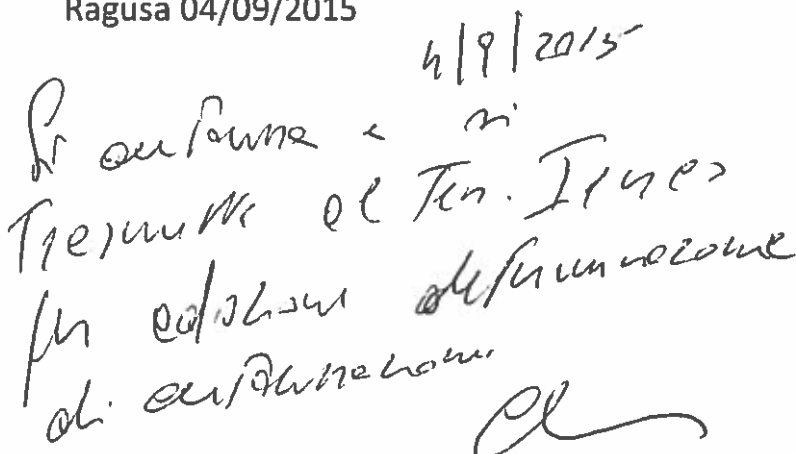 Ragusa 04/09/2015
4/9/2015
Si autorizza e si
Trasmette al Ten.
per adozione determinazione
di autorizzazione